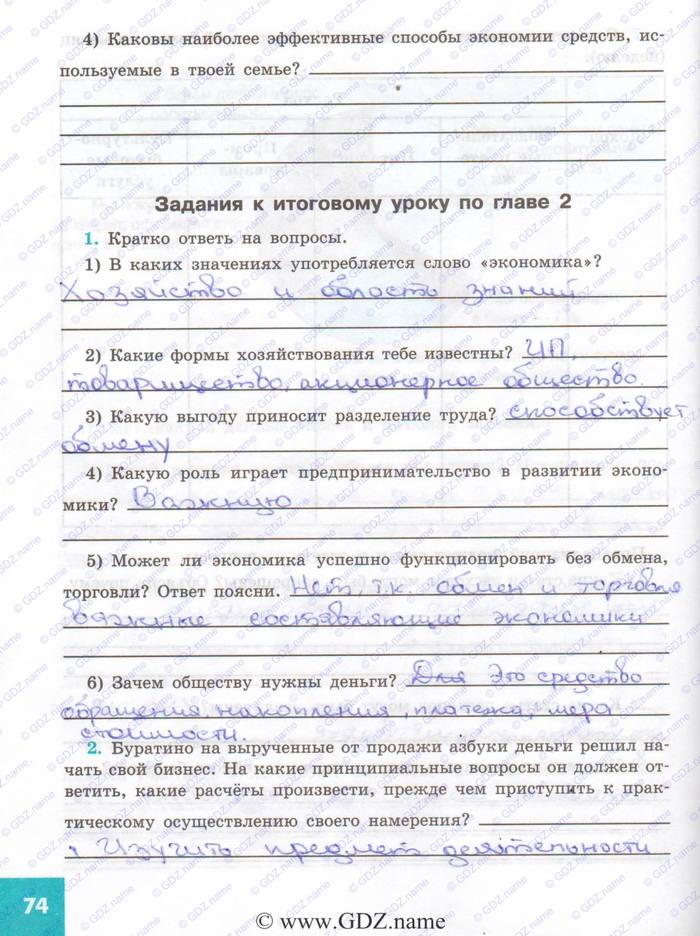 4) Каковы наиболее эффективные способы экономии средств, ис-
пользуемые в твоей семье?
Задания к итоговому уроку по главе 2
1. Кратко ответь на вопросы.
1) В каких значениях употребляется слово «экономика»?
Хозяйство и область знаний
2) Какие формы хозяйствования тебе известны? ИП,
товарищество, акционерное общество.
3) Какую выгоду приносит разделение труда? способствует
обмену
4) Какую роль играет предпринимательство в развитии эконо-
мики? Важную
5) Может ли экономика успешно функционировать без обмена,
торговли? Ответ поясни. Нет, т.к. обмен и торговля
важные составляющие экономики
6) Зачем обществу нужны деньги? Для Это средство
обращения, накопления, платежа, мера
стоимости.
2. Буратино на вырученные от продажи азбуки деньги решил на-
чать свой бизнес. На какие принципиальные вопросы он должен от-
ветить, какие расчёты произвести, прежде чем приступить к прак-
тическому осуществлению своего намерения?
Изучить предмет деятельности
74
© www.GDZ.name